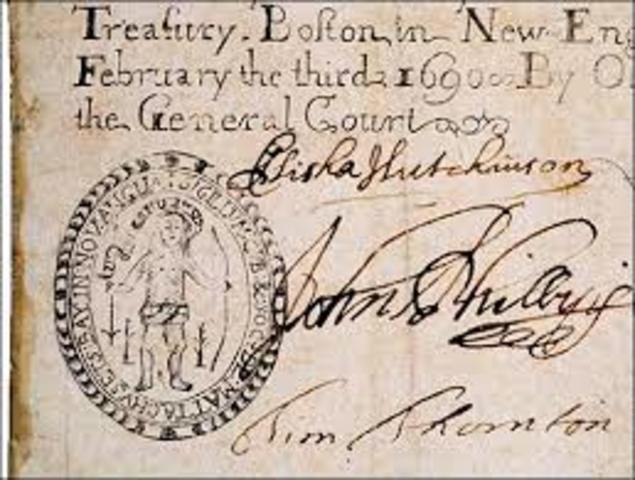 Treaſury. Boſton in New Eng
February the third 1690. By O
the General Court
Elisha Hutchinson
John Phillips
Tim Thornton
SIGILLUM
IN NOV ANGLIA